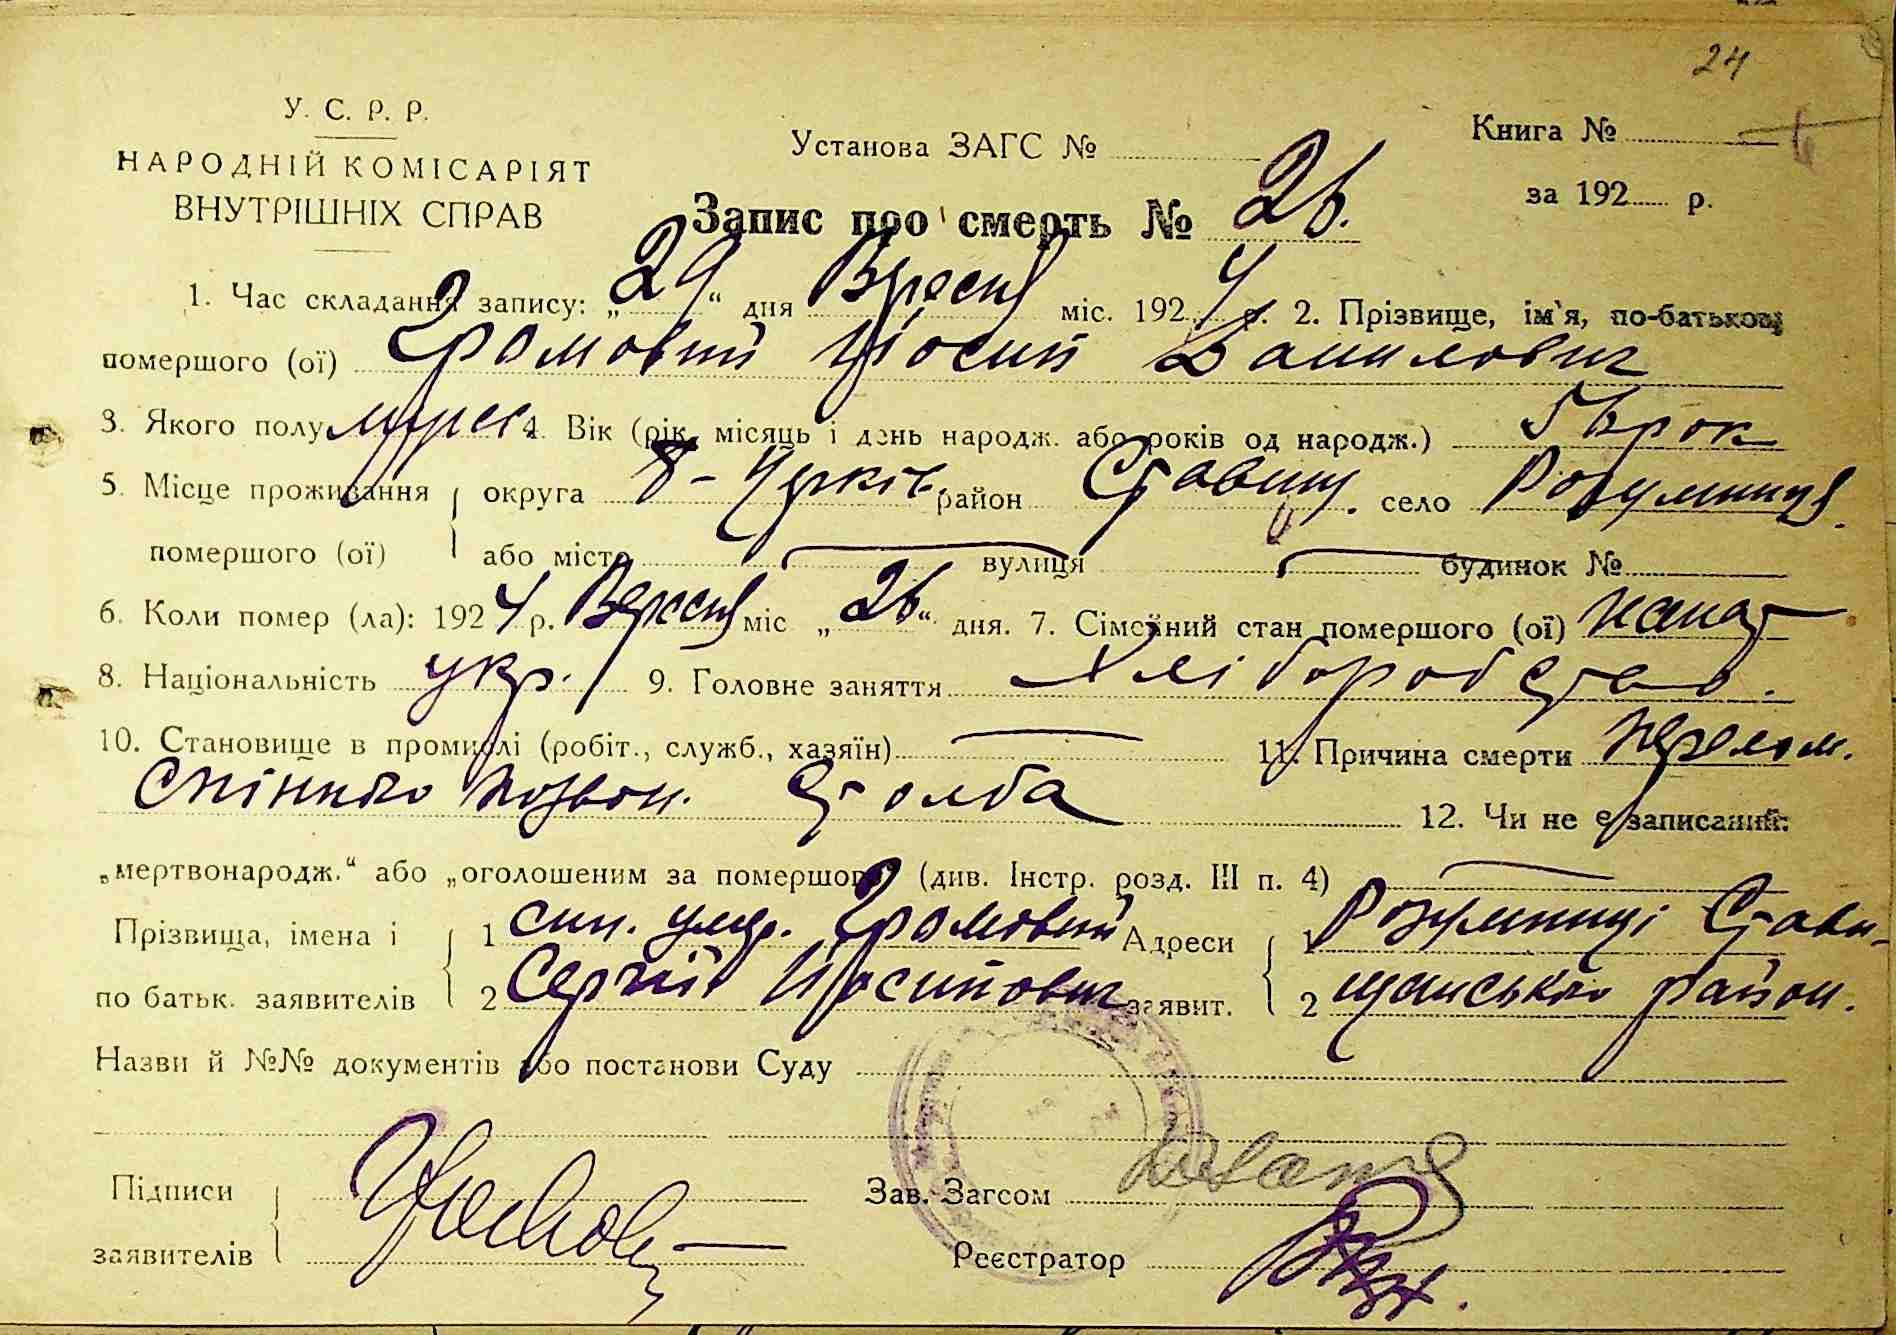 24
У. С. Р. Р.
НАРОДНІЙ КОМІСАРІЯТ
ВНУТРІШНІХ СПРАВ
Установа ЗАГС №
Книга №
за 192 р.
Запис про смерть № 26.
1. Час складання запису: „29“ дня Вересня міс. 1924 р. 2. Прізвище, ім'я, по-батькові
помершого (ої) Громовий Йосип Данилович
3. Якого полу 4. Вік (рік, місяць і день народж. або років од народж.) рок
5. Місце проживання округа Б-Церків. район Ставищ. село Розумниця.
помершого (ої) або місто вулиця будинок №
6. Коли помер (ла): 1924 р. Вересня міс „26“ дня. 7. Сімейний стан помершого (ої)
8. Національність укр. 9. Головне заняття Хліборобство.
10. Становище в промислі (робіт., служб., хазяїн) 11. Причина смерти перелом.
спінного позвон. столба
12. Чи не є записаний:
„мертвонародж.“ або „оголошеним за помершого“ (див. Інстр. розд. III п. 4)
Прізвища, імена і 1 син. умер. Громовий Адреси 1 Розумниці Стави-
по батьк. заявителів 2 Сергій Йосипович заявит. 2 щанського район.
Назви й №№ документів або постанови Суду
Підписи
заявителів
Зав. Загсом
Реєстратор